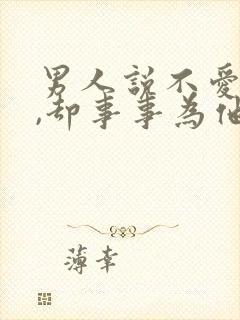 男人說不愛
,却事事為他
薄幸